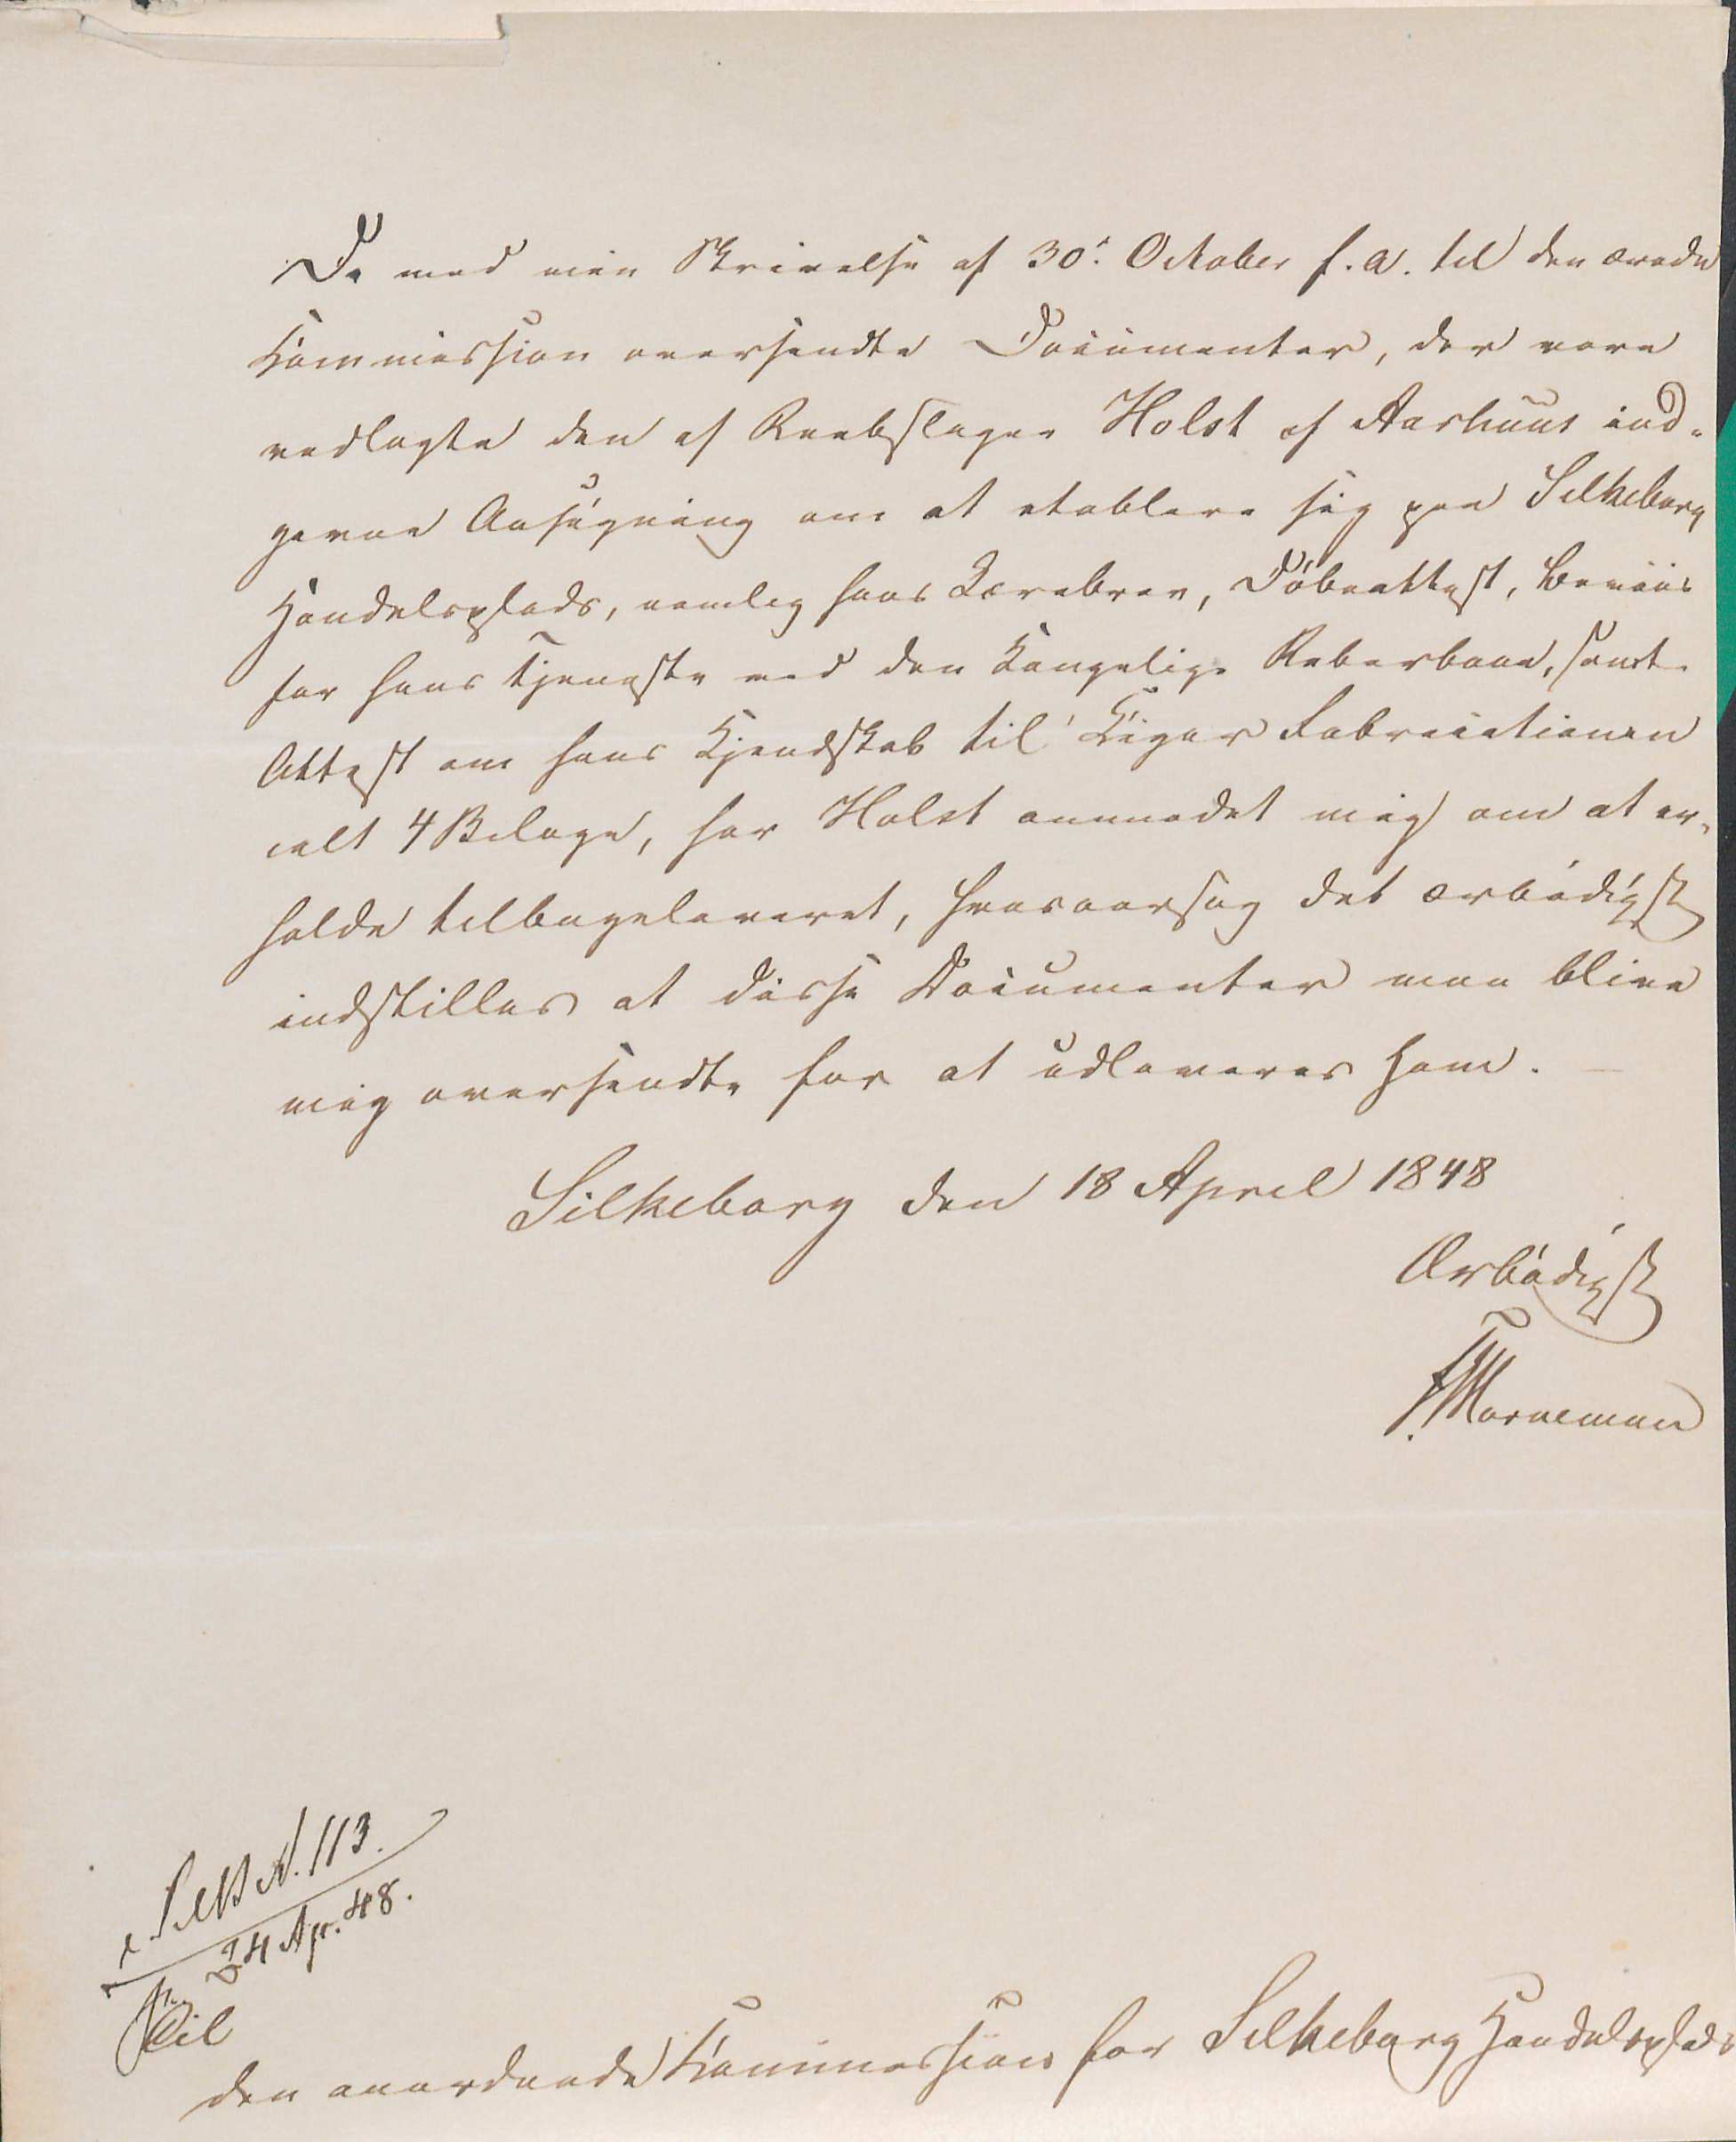 De med min Skrivelse af 30te October f. A. til den ærede
Kommission oversendte Documenter, der vare
vedlagte den af Reebslager Holst af Aarhuus ind-
givne Ansøgning om at etablere sig paa Silkeborg
Handelsplads, nemlig hans Lærebrev, Døbeattest, Beviis
for hans Tjeneste ved den Kongelige Reberbane, samt
Attest om hans Kjendskab til Cigar Fabricationen
ialt 4 Bilage, har Holst anmodet mig om at er-
holde tilbageleveret, hvoraarsag det ærbødigst
indstilles at disse Documenter maa blive
mig oversendte for at udleveres ham. —
Silkeborg den 18 April 1848
Ærbødigst
Worneman
Silkb N. 113.
24 Apr. 48.
Til
den anordnede Kommission for Silkeborg Handelsplads